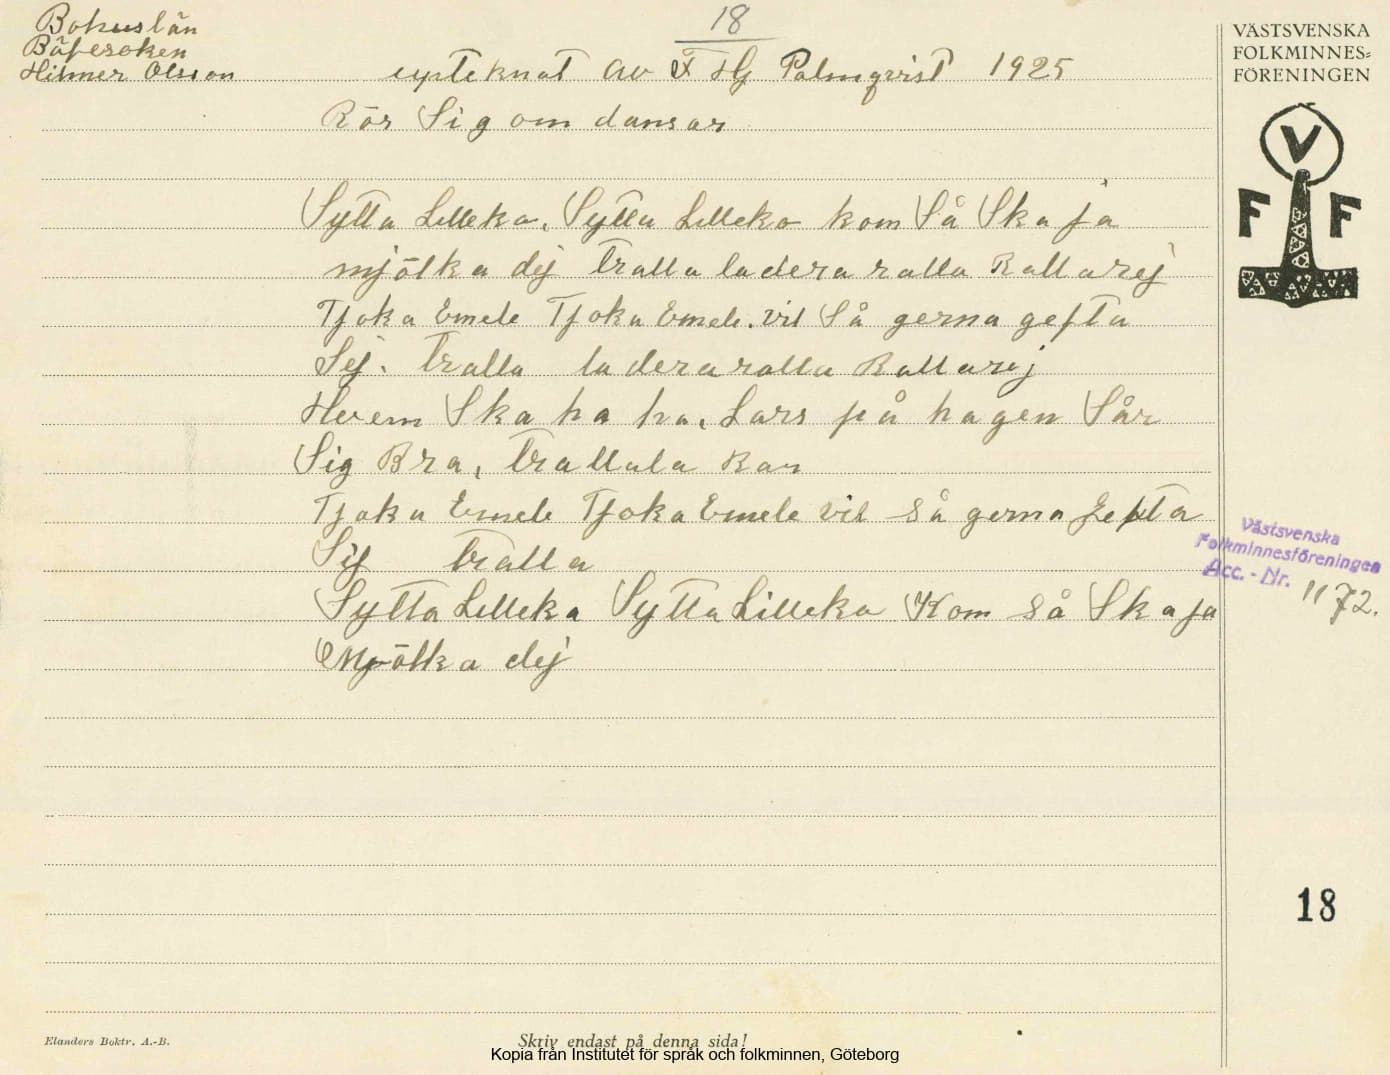 18
Bohuslän
Bäfesoken
Hilmer Olsson
upteknat av F Hj Palmqvist 1925
Rör Sig om dansar
Sytta Lilleko, Sytta Lilleko kom Så Ska ja
mjölka dej tralla ladera ralla Rallarej
Tjoka Emele Tjoka Emele. vil Så gerna gefta
Sej. tralla laderaralla Rallarej
Hvem Ska ha ha, Lars på hagen Sår
Sig Bra, trallala Ran
Tjoka Emele Tjoka Emele vil Så gerna Jefta
Sij tralla
Sytta Lilleka Sytta Lilleka Kom Så Ska ja
Mjölka dej
VÄSTSVENSKA
FOLKMINNES=
FÖRENINGEN
V
F F
Västsvenska
Folkminnesföreningen
Acc. - Nr. 1172.
18
Elanders Boktr. A.-B.
Skriv endast på denna sida!
Kopia från Institutet för språk och folkminnen, Göteborg